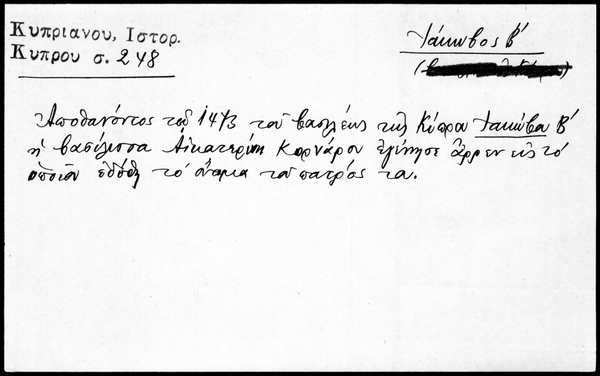 Κυπριανου, Ιστορ.
Κυπρου σ. 248
Ιάκωβος Β'
Ἀποθανόντος τοῦ 1473 τοῦ βασιλέως τῆς Κύπρου Ἰακώβου Β'
ἡ βασίλισσα Αἰκατερίνη Κορνάρου ἐγέννησε ἄρρεν εἰς τό
ὁποῖον ἐδόθη τό ὄνομα τοῦ πατρός του.